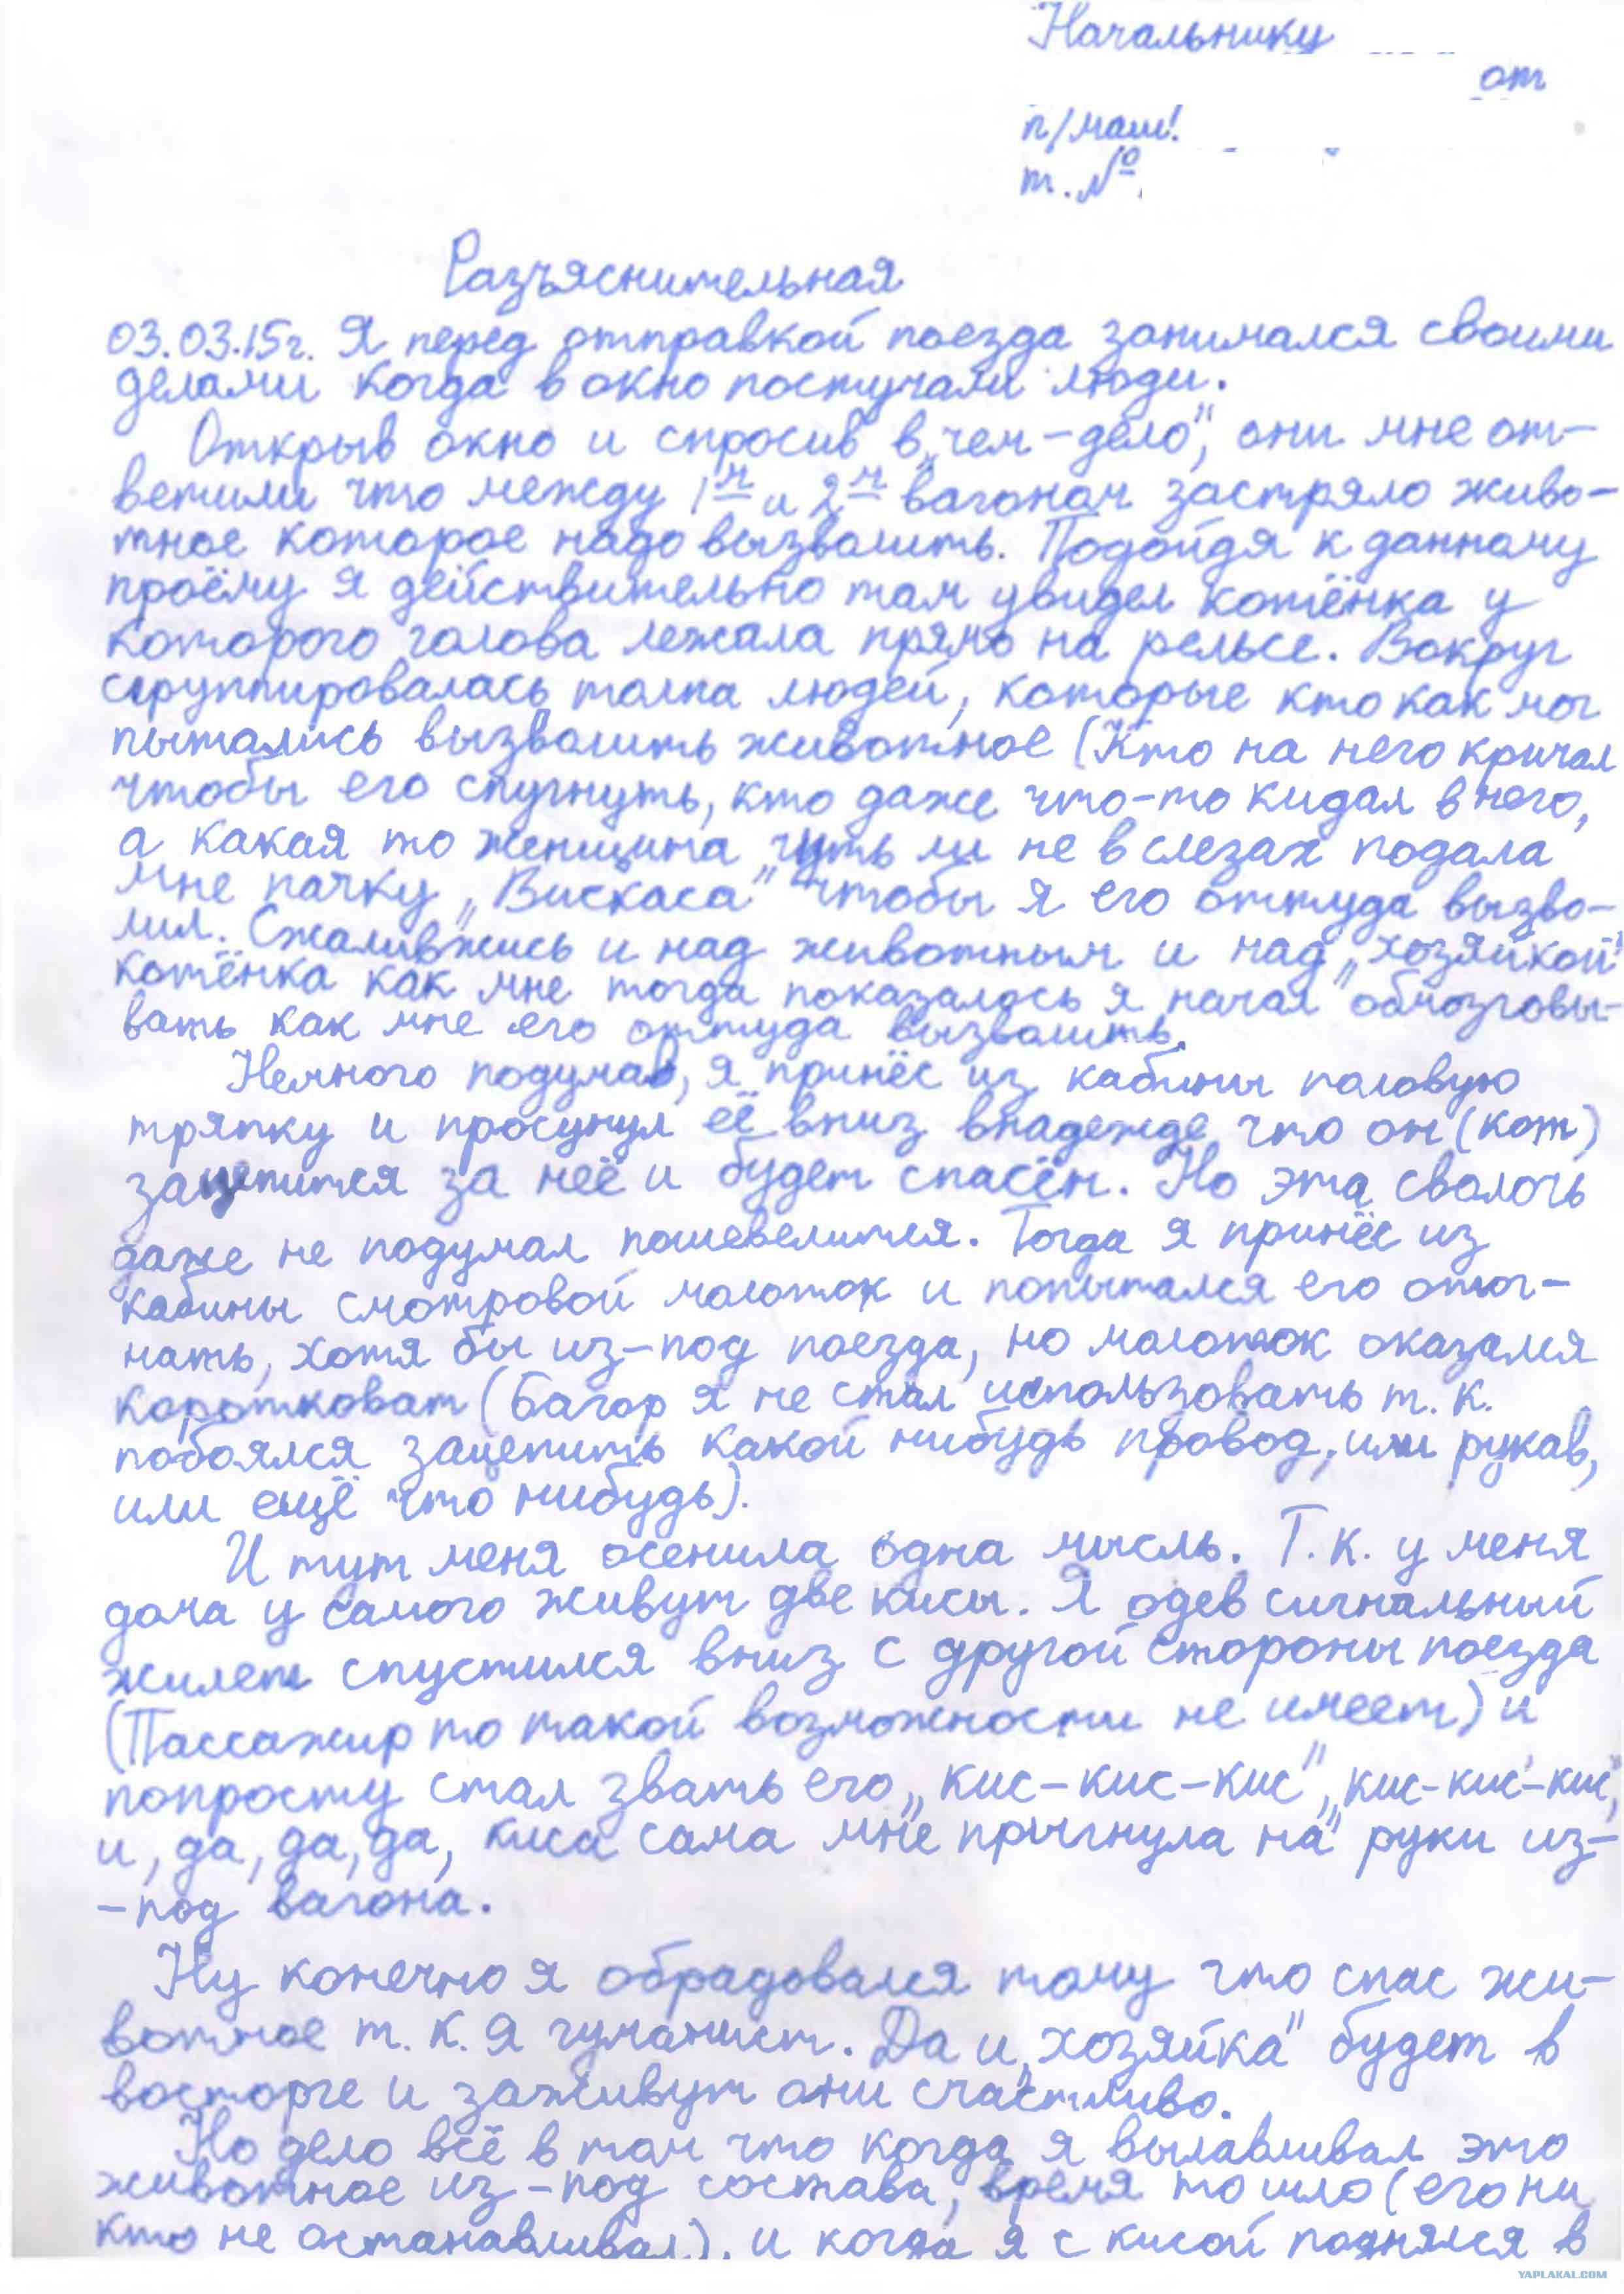 Начальнику
от
п/маш!
т. №
Разъяснительная
03.03.15г. Я перед отправкой поезда занимался своими
делами когда в окно постучали люди.
Открыв окно и спросив в „чем-дело", они мне от-
ветили что между 1м и 2м вагоном застряло живо-
тное которое надо вызволить. Подойдя к данному
проёму я действительно там увидел котёнка у
которого голова лежала прямо на рельсе. Вокруг
сгруппировалась толпа людей, которые кто как мог
пытались вызволить животное (Кто на него кричал
чтобы его спугнуть, кто даже что-то кидал в него,
а какая то женщина чуть ли не в слезах подала
мне пачку „Вискаса" чтобы я его оттуда вызво-
лил. Сжалившись и над животным и над „хозяйкой"
котёнка как мне тогда показалось я начал обмозговы-
вать как мне его оттуда вызволить.
Немного подумав, я принёс из кабины половую
тряпку и просунул её вниз внадежде что он (кот)
зацепится за неё и будет спасён. Но эта сволочь
даже не подумал пошевелится. Тогда я принёс из
кабины смотровой молоток и попытался его отог-
нать, хотя бы из-под поезда, но молоток оказался
коротковат (Багор я не стал использовать т.к.
побоялся зацепить какой нибудь провод, или рукав,
или ещё что нибудь).
И тут меня осенила одна мысль. Т.к. у меня
дома у самого живут две кисы. Я одев сигнальный
жилет спустился вниз с другой стороны поезда
(Пассажир то такой возможности не имеет) и
попросту стал звать его „кис-кис-кис", „кис-кис-кис",
и, да, да, да, киса сама мне прыгнула на руки из-
-под вагона.
Ну конечно я обрадовался тому что спас жи-
вотное т.к. я гуманист. Да и „хозяйка" будет в
восторге и заживут они счастливо.
Но дело всё в том что когда я вылавливал это
животное из-под состава, время то шло (его ни
кто не останавливал). и когда я с кисой поднялся в
YAPLAKAL.COM